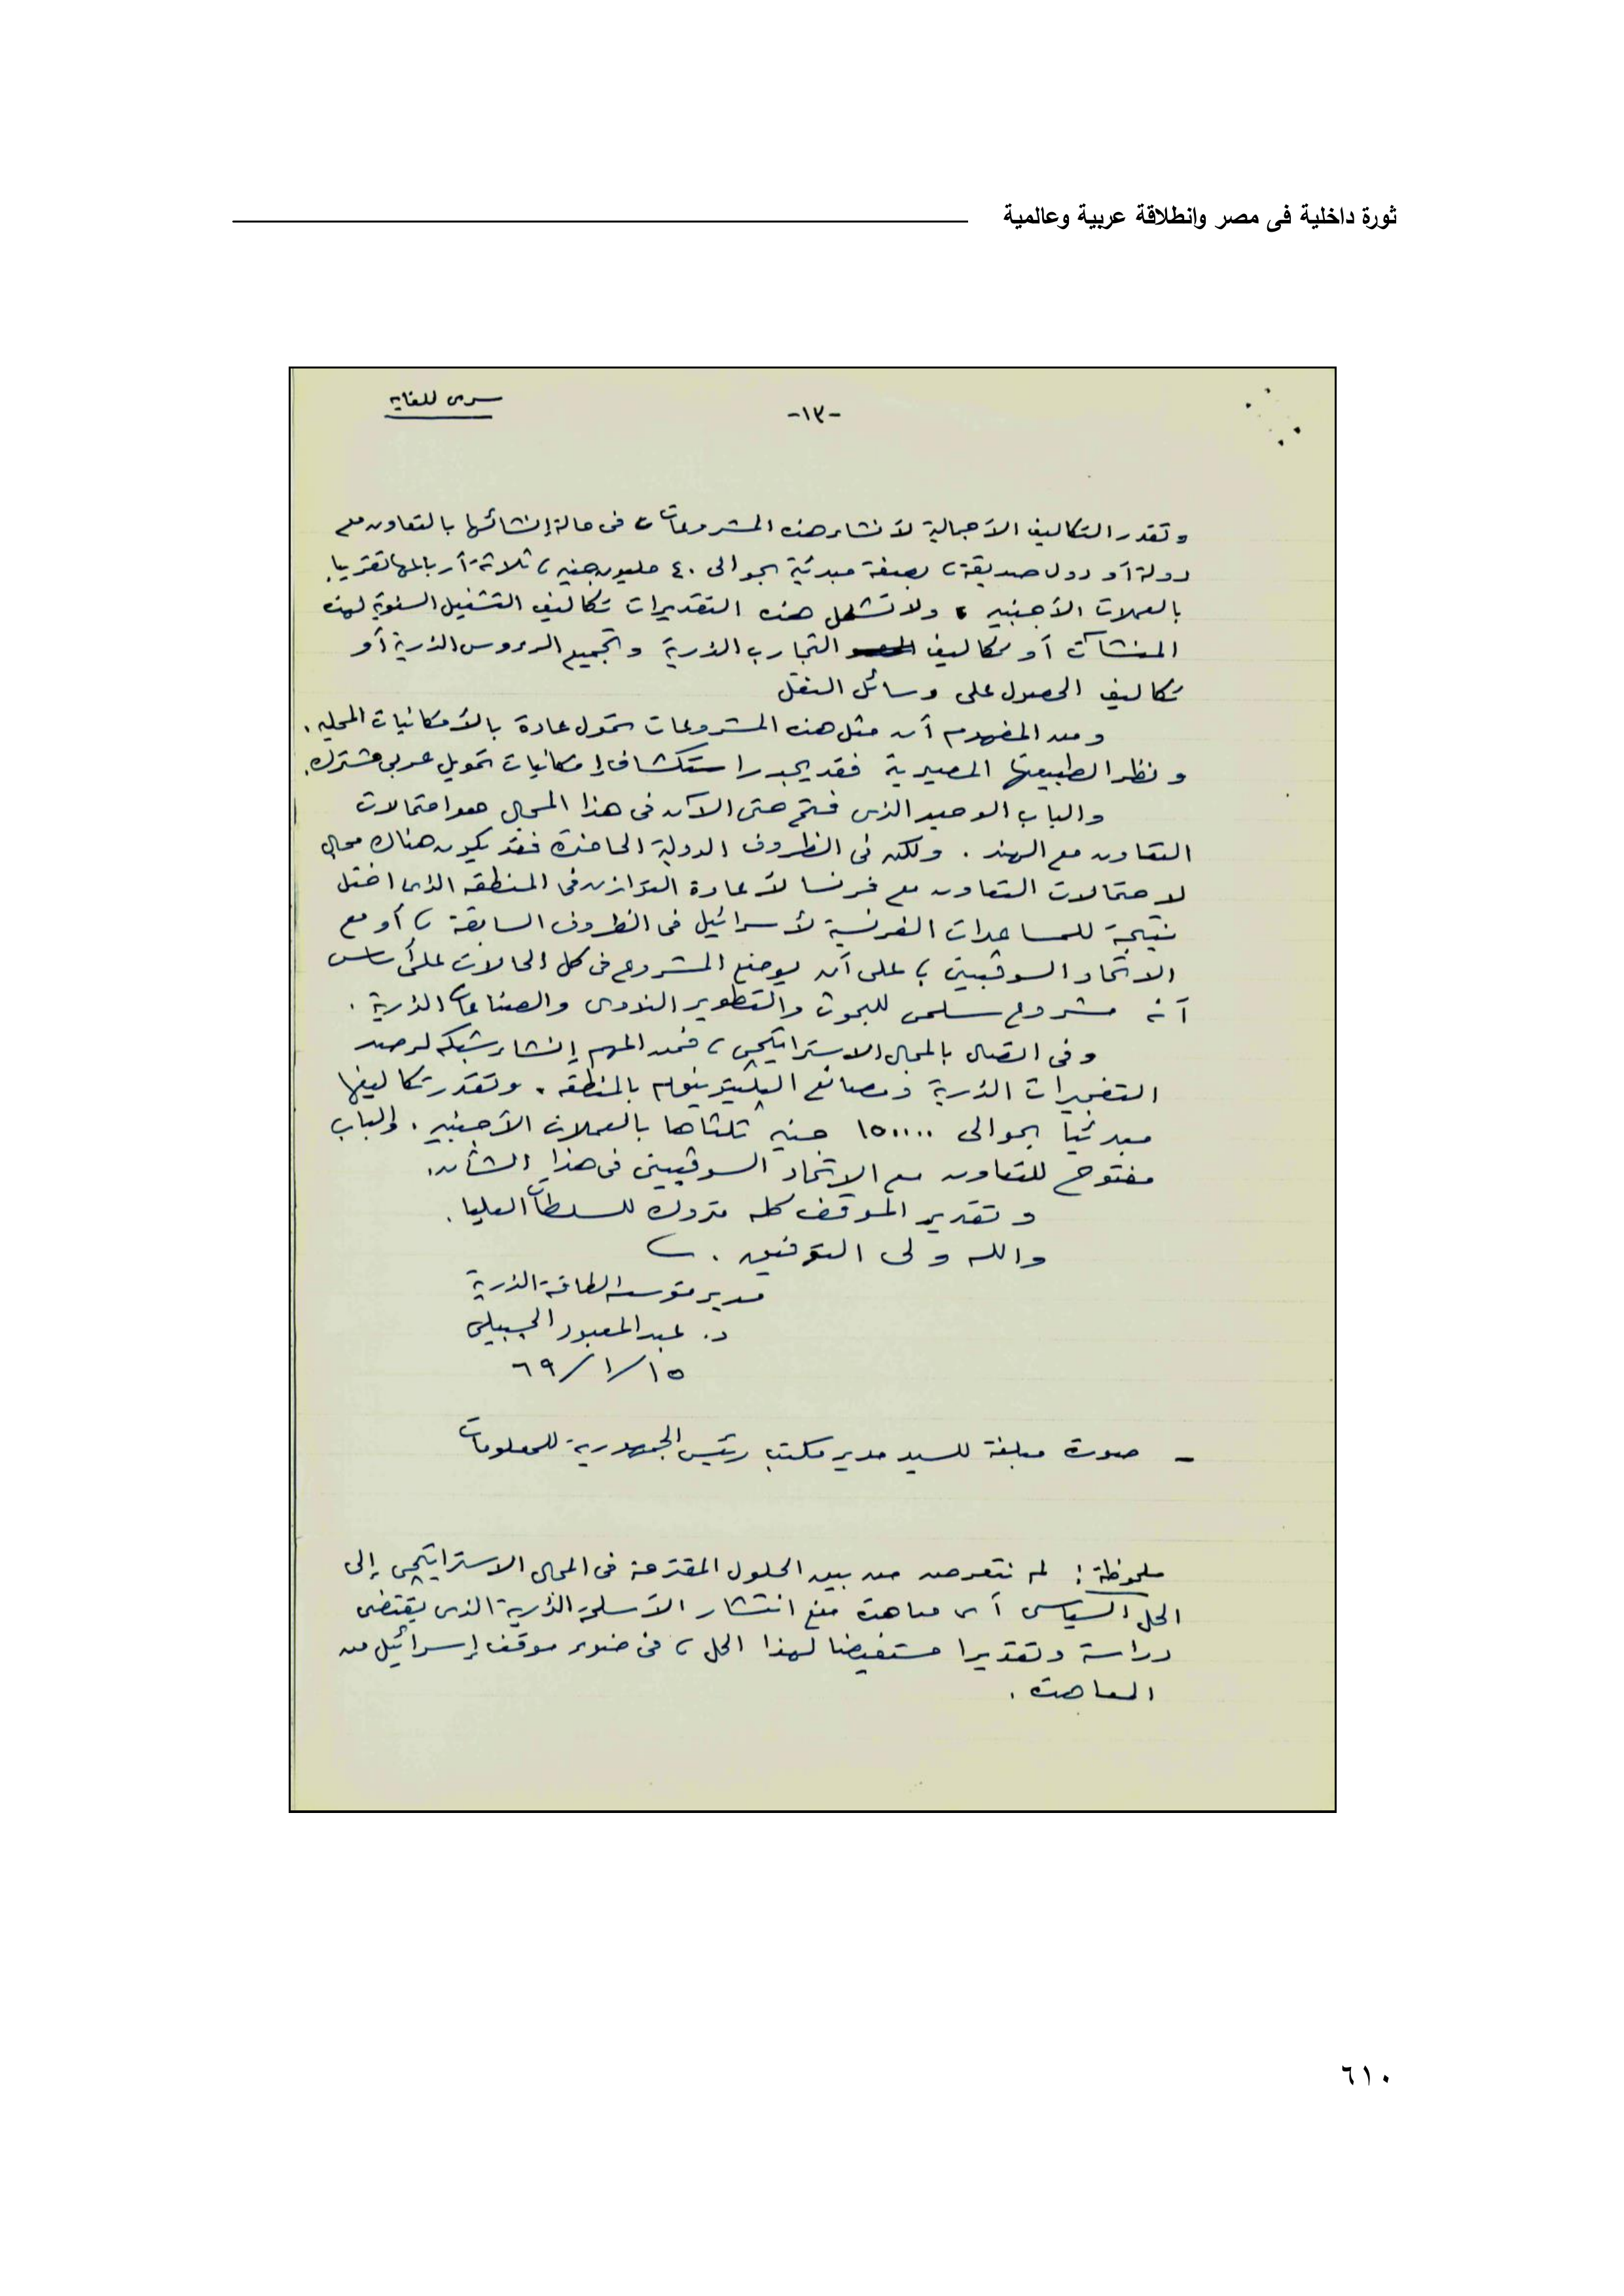 ثورة داخلية فى مصر وانطلاقة عربية وعالمية
سرى للغاية
-١٣-
وتقدر التكاليف الأجمالية لأنشاء هذه المشروعات، فى حالة إنشائها بالتعاون مع
دولة أو دول صديقة، بصفة مبدئية بحوالى ٤٠ مليون جنيه، ثلاثة أرباعها تقريبا
بالعملات الأجنبيه، ولا تشمل هذه التقديرات تكاليف التشغيل السنوية لهذه
المنشآت أو تكاليف التجارب الذرية وتجميع الرءوس الذرية أو
تكاليف الحصول على وسائل النقل
ومن المفهوم أن مثل هذه المشروعات تمول عادة بالأمكانيات المحليه.
ونظرا لطبيعتها المصيرية فقد يجدر استكشاف إمكانيات تمويل عربى مشترك.
والباب الوحيد الذى فتح حتى الآن فى هذا المجال هو احتمالات
التعاون مع الهند. ولكن فى الظروف الدولية الحاضرة فقد يكون هناك مجال
لاحتمالات التعاون مع فرنسا لأعادة التوازن فى المنطقه الذى اختل
نتيجة للمساعدات الفرنسية لأسرائيل فى الظروف السابقة، أو مع
الاتحاد السوڤييتى، على أن يوضع المشروع فى كل الحالات على أساس
أنه مشروع سلمى للبحوث والتطوير النووى والصناعات الذرية.
وفى اتصال بالمجال الاستراتيجى، فمن المهم إنشاء شبكه لرصد
التفجيرات الذرية ومصانع البلوتونيوم بالمنطقه. وتقدر تكاليفها
مبدئيا بحوالى ١٥٠٠٠٠ جنيه ثلثاها بالعملات الأجنبيه. والباب
مفتوح للتعاون مع الاتحاد السوڤييتى فى هذا الشأن.
وتقدير الموقف كله متروك للسلطات العليا.
والله ولى التوفيق.
مدير مؤسسة الطاقة الذرية
د. عبد المعبود الجبيلى
١٥/١/٦٩
- صورة مبلغة للسيد مدير مكتب رئيس الجمهورية للمعلومات
ملحوظة: لم نتعرض من بين الحلول المقترحة فى المجال الاستراتيجى إلى
الحل السياسى أى معاهدة منع انتشار الأسلحة الذرية الذى يقتضى
دراسة وتقديرا مستفيضا لهذا الحل، فى ضوء موقف إسرائيل من
المعاهدة.
٦١٠